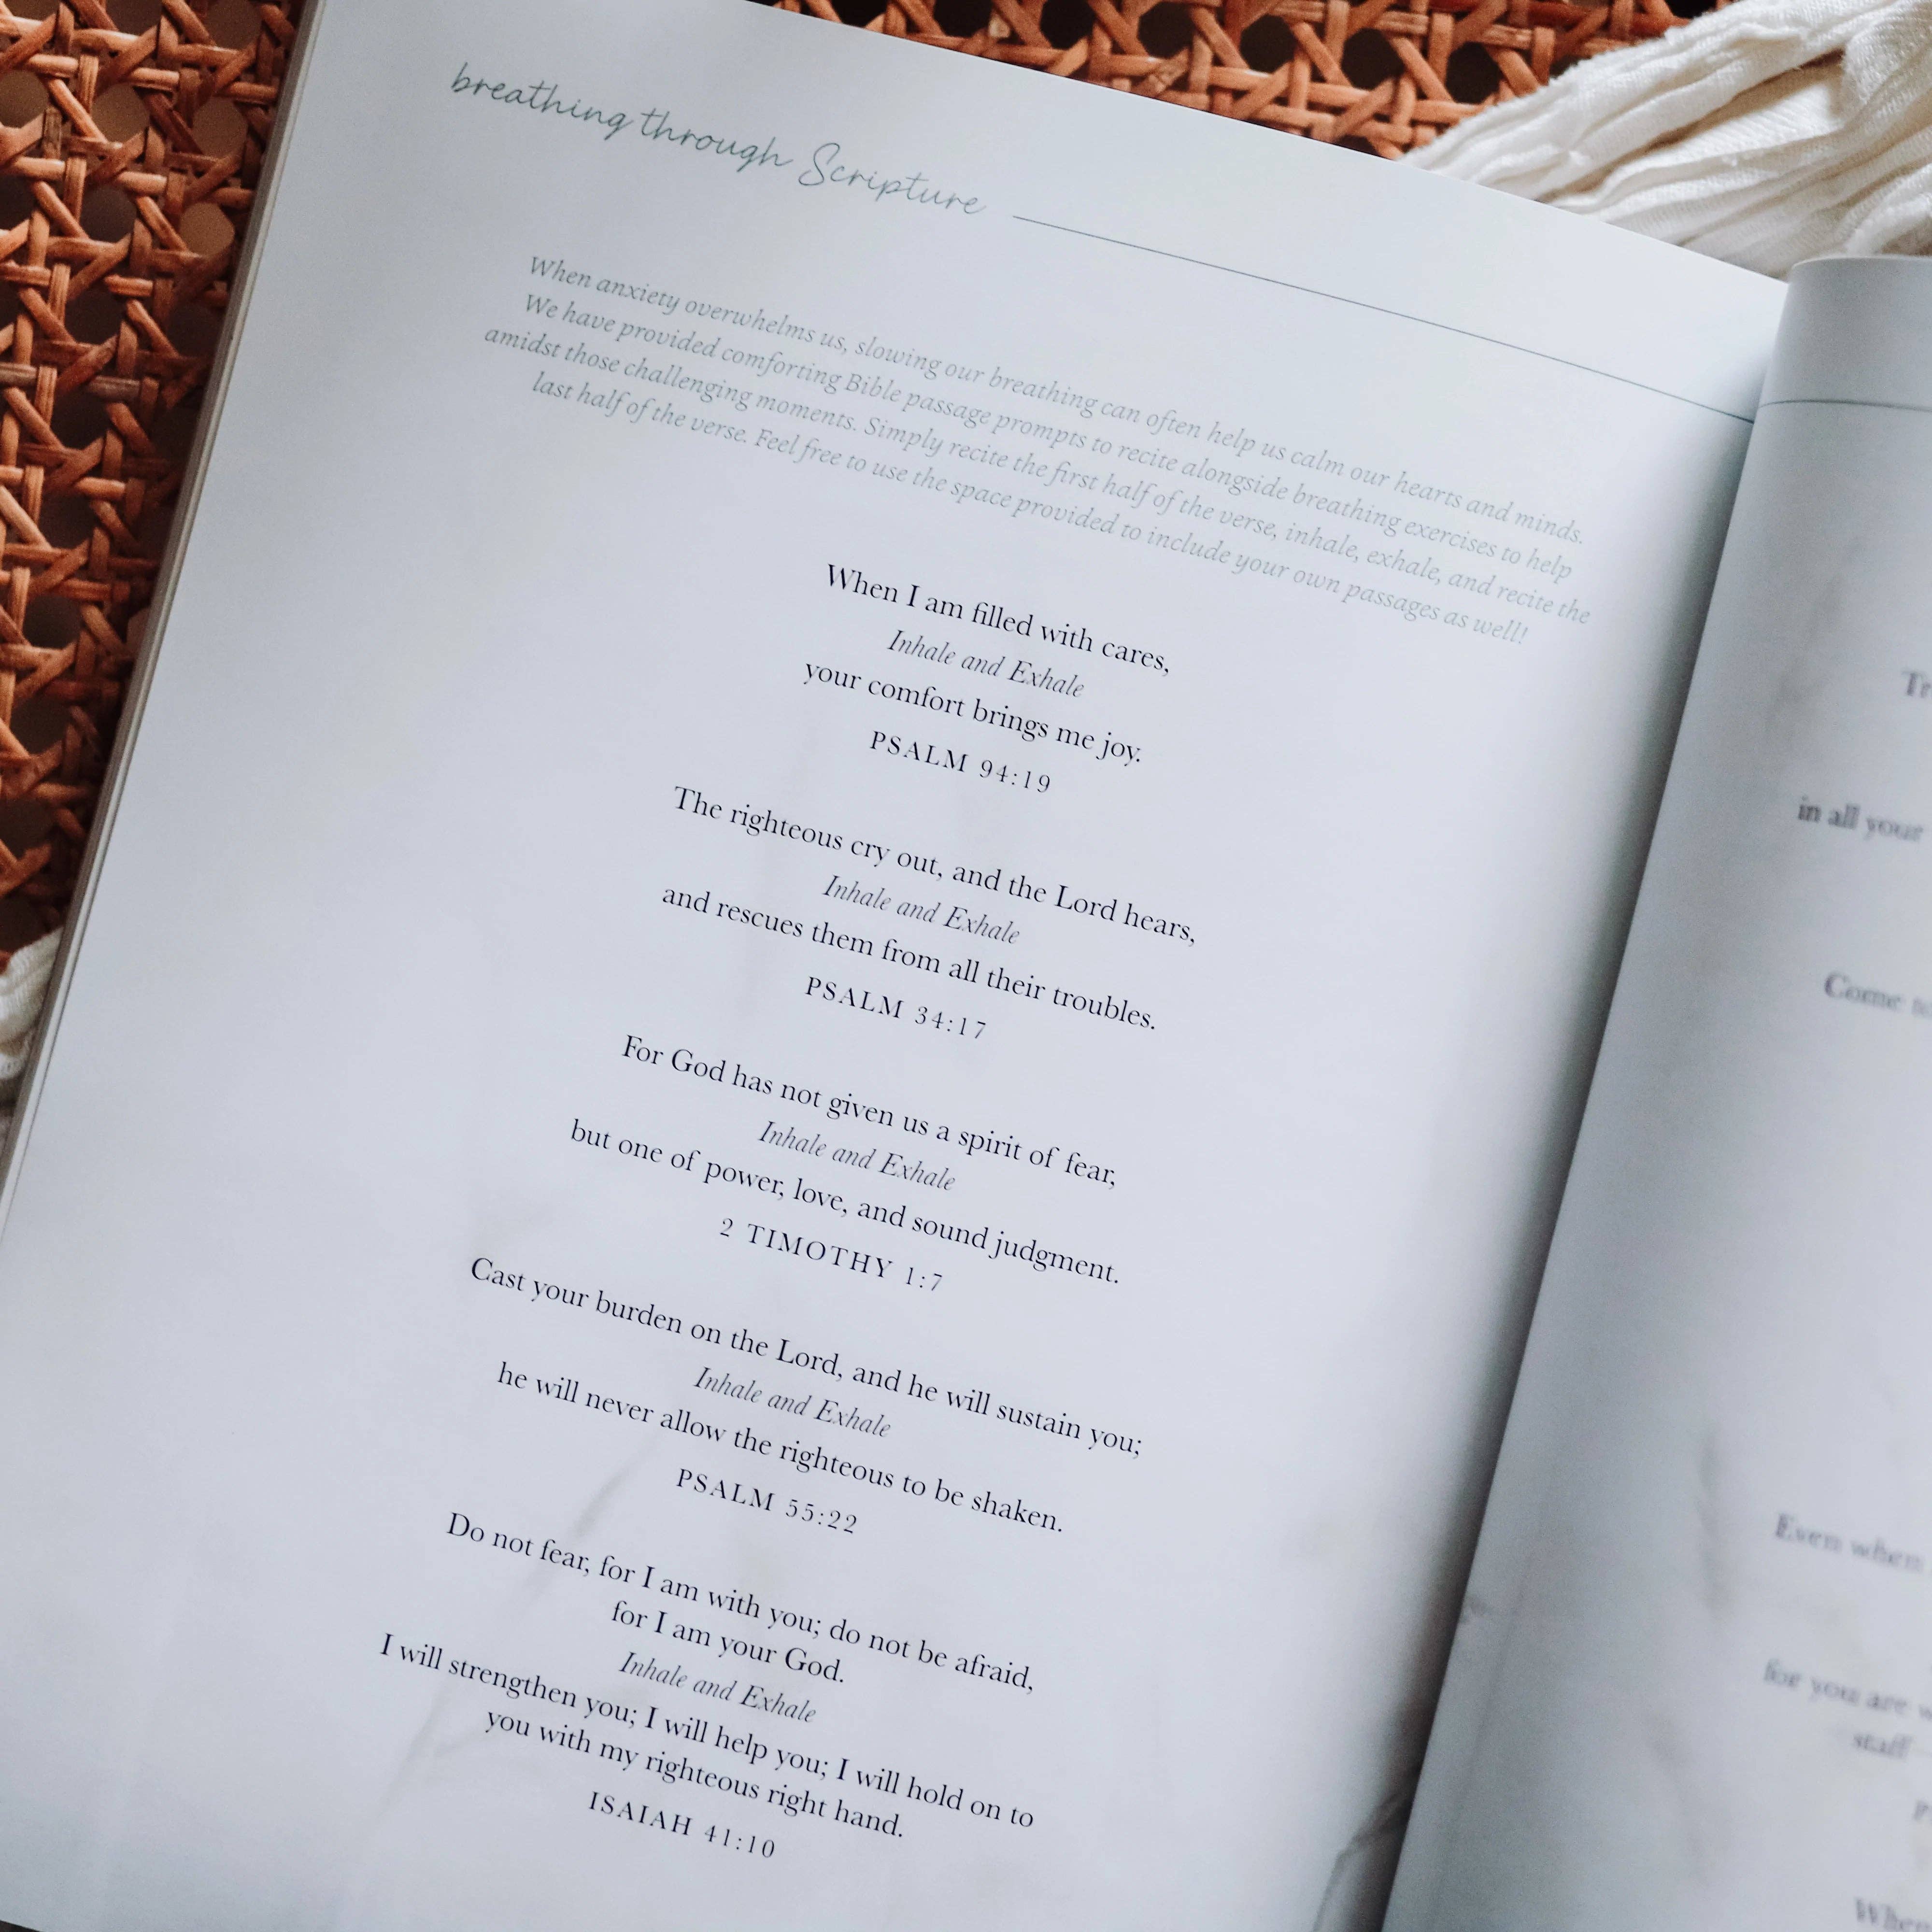 breathing through Scripture
When anxiety overwhelms us, slowing our breathing can often help us calm our hearts and minds.
We have provided comforting Bible passage prompts to recite alongside breathing exercises to help
amidst those challenging moments. Simply recite the first half of the verse, inhale, exhale, and recite the
last half of the verse. Feel free to use the space provided to include your own passages as well!
When I am filled with cares,
Inhale and Exhale
your comfort brings me joy.
PSALM 94:19
The righteous cry out, and the Lord hears,
Inhale and Exhale
and rescues them from all their troubles.
PSALM 34:17
For God has not given us a spirit of fear,
Inhale and Exhale
but one of power, love, and sound judgment.
2 TIMOTHY 1:7
Cast your burden on the Lord, and he will sustain you;
Inhale and Exhale
he will never allow the righteous to be shaken.
PSALM 55:22
Do not fear, for I am with you; do not be afraid,
for I am your God.
Inhale and Exhale
I will strengthen you; I will help you; I will hold on to
you with my righteous right hand.
ISAIAH 41:10
in all your
Come
Even when
for you are
staff